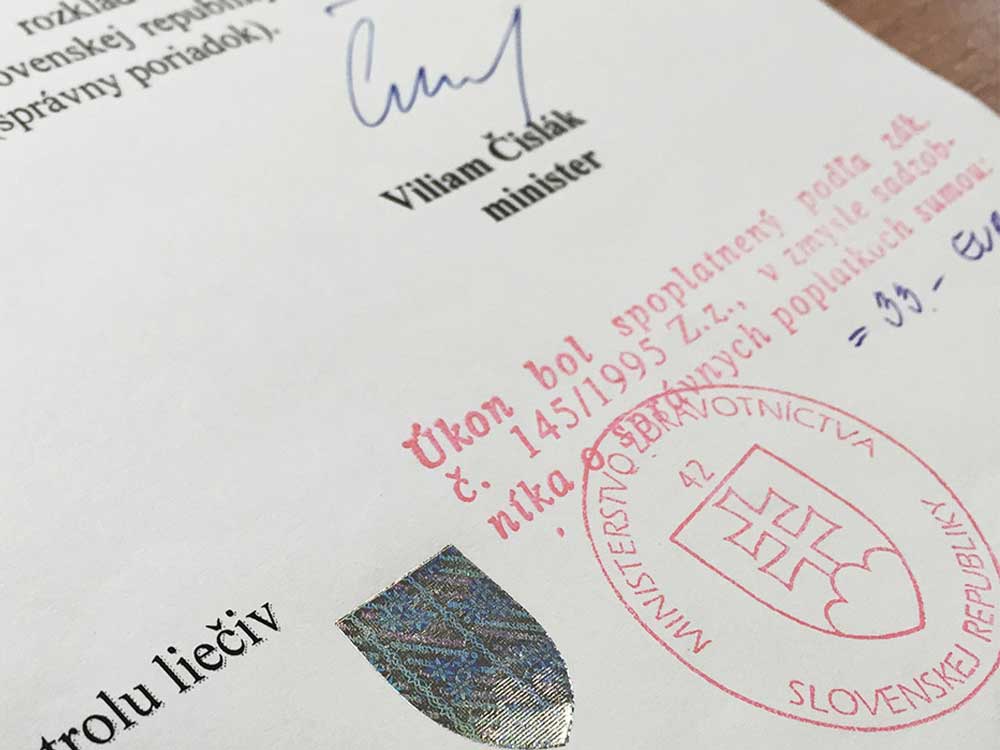 rozklad
ovenskej republik
(správny poriadok).
Viliam Čislák
minister
Úkon bol spoplatnený podľa zák.
č. 145/1995 Z.z., v zmysle sadzob-
níka o správnych poplatkoch sumou:
= 33.- EUR
MINISTERSTVO ZDRAVOTNÍCTVA
42
SLOVENSKEJ REPUBLIKY
trolu liečiv